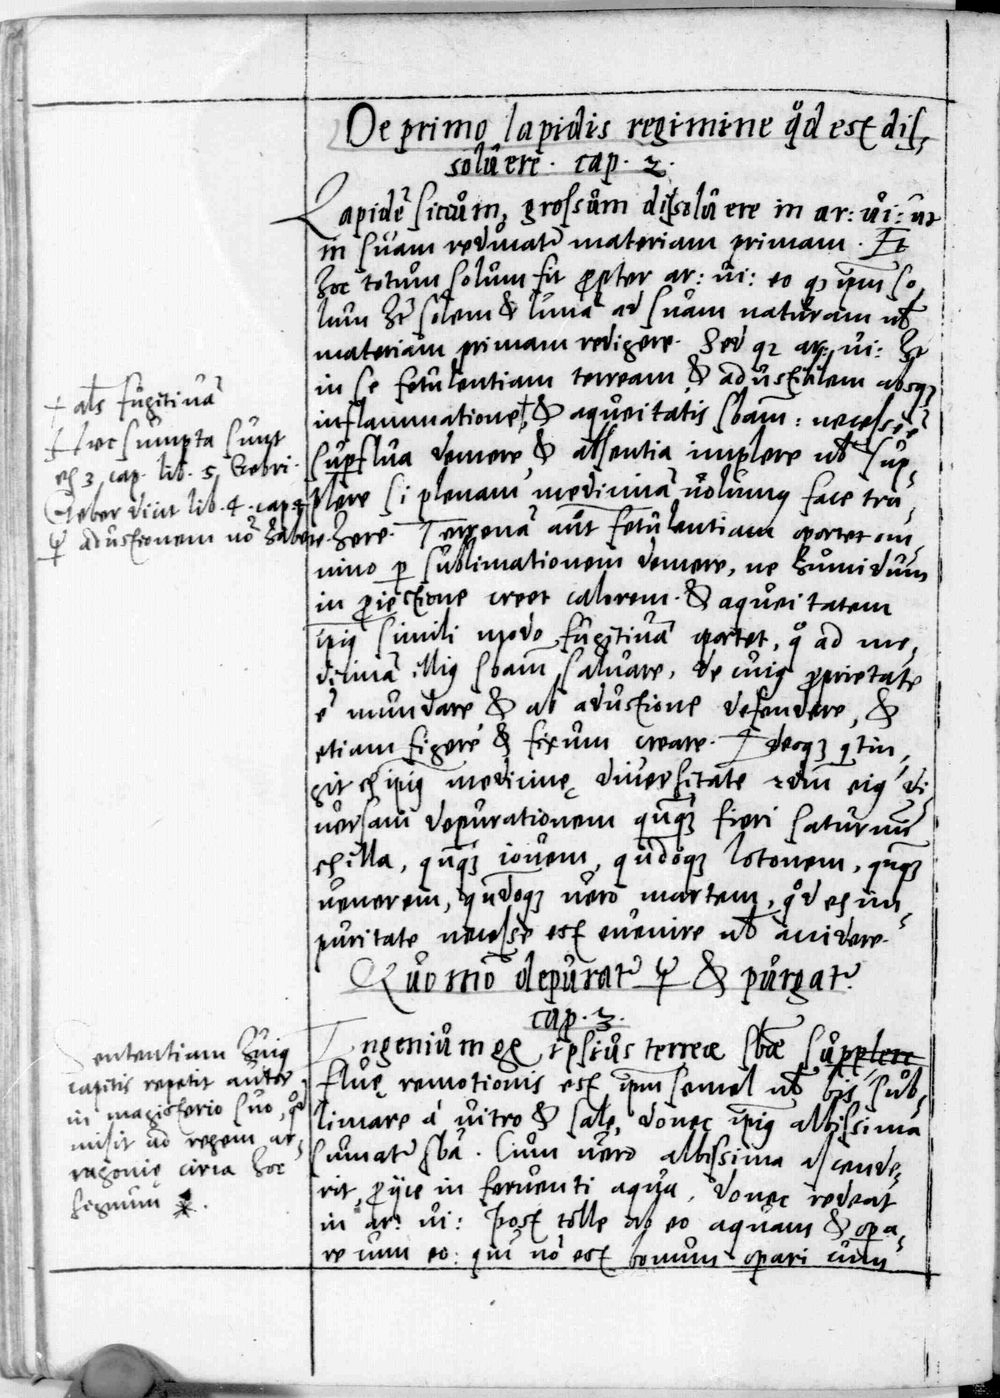 De primo lapidis regimine qd est dis,
soluere. cap. 2.
Lapidē siccum, grossum dissoluere in ar: ui: ut
in suam reducatr materiam primam. Et
hoc totum solum fit ꝓpter ar: ui: eo ꝙ ipm so,
lum hēt solem & lunā ad suam naturam ul
materiam primam redigere. Sed qz ar: ui: hēt
in se fetulentiam terream & adustibilem absqz
inflammatione†, & aqueitatis sbam: necesse ē
supflua demere & absentia implere ul sup-
plere si plenam medicinā uolumꝯ face tra,
here. Terrenā aut fetulentiam oportet om,
nino ꝑ sublimationem demere, ne humidum
in ꝓiectione creet calorem. & aqueitatem
ipiꝯ simili modo fugitiuā oportet, q ad me,
dicinā illiꝯ sbam saluare, de cuiꝯ ꝓprietate
ē mundare & ab adustione defendere, &
etiam figere & fixum creare. Ideoqz ꝯtin,
git ex ipiꝯ medicinę diuersitate eiꝯ di
uersam depurationem qnqz fieri saturnū
ex illa, qnqz iouem, qndoqz lotonem, qnqz
uenerem, qndoqz uero martem, qd ex im,
puritate necesse est euenire ul accidere.
Quomō depuratr ☿ & purgatr
cap. 3.
Ingenium ipsius terreae sbae supplere
fluę remotionis est ipm semel ul bis sub,
limare à uitro & sale, donec ipiꝯ albissima
sumatr sba. Cum uero albissima ascende,
rit, ꝓijce in feruenti aqua, donec redeat
in ar: ui: Post tolle ab eo aquam & opa,
re cum eo: quī nō est bonum operari cum
+ als fugitiuā
Haec sumpta sunt
ex 3 cap. lib. 5 Gebri.
Geber dicit lib. 4. cap 4
☿ adustionem nō habere.
Sententiam huiꝯ
capitis repetit autor
in magisterio suo, qd
misit ad regem ar,
ragonię circa hoc
signum ⁎.